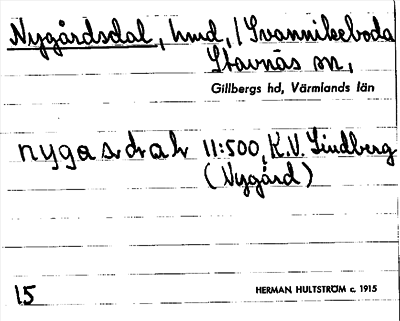 Nygårdsdal, hmd, / Svannikeboda
Stavnäs sn,
Gillbergs hd, Värmlands län
11:500, K.V. Lindberg
(Nygård)
15
HERMAN HULTSTRÖM c. 1915